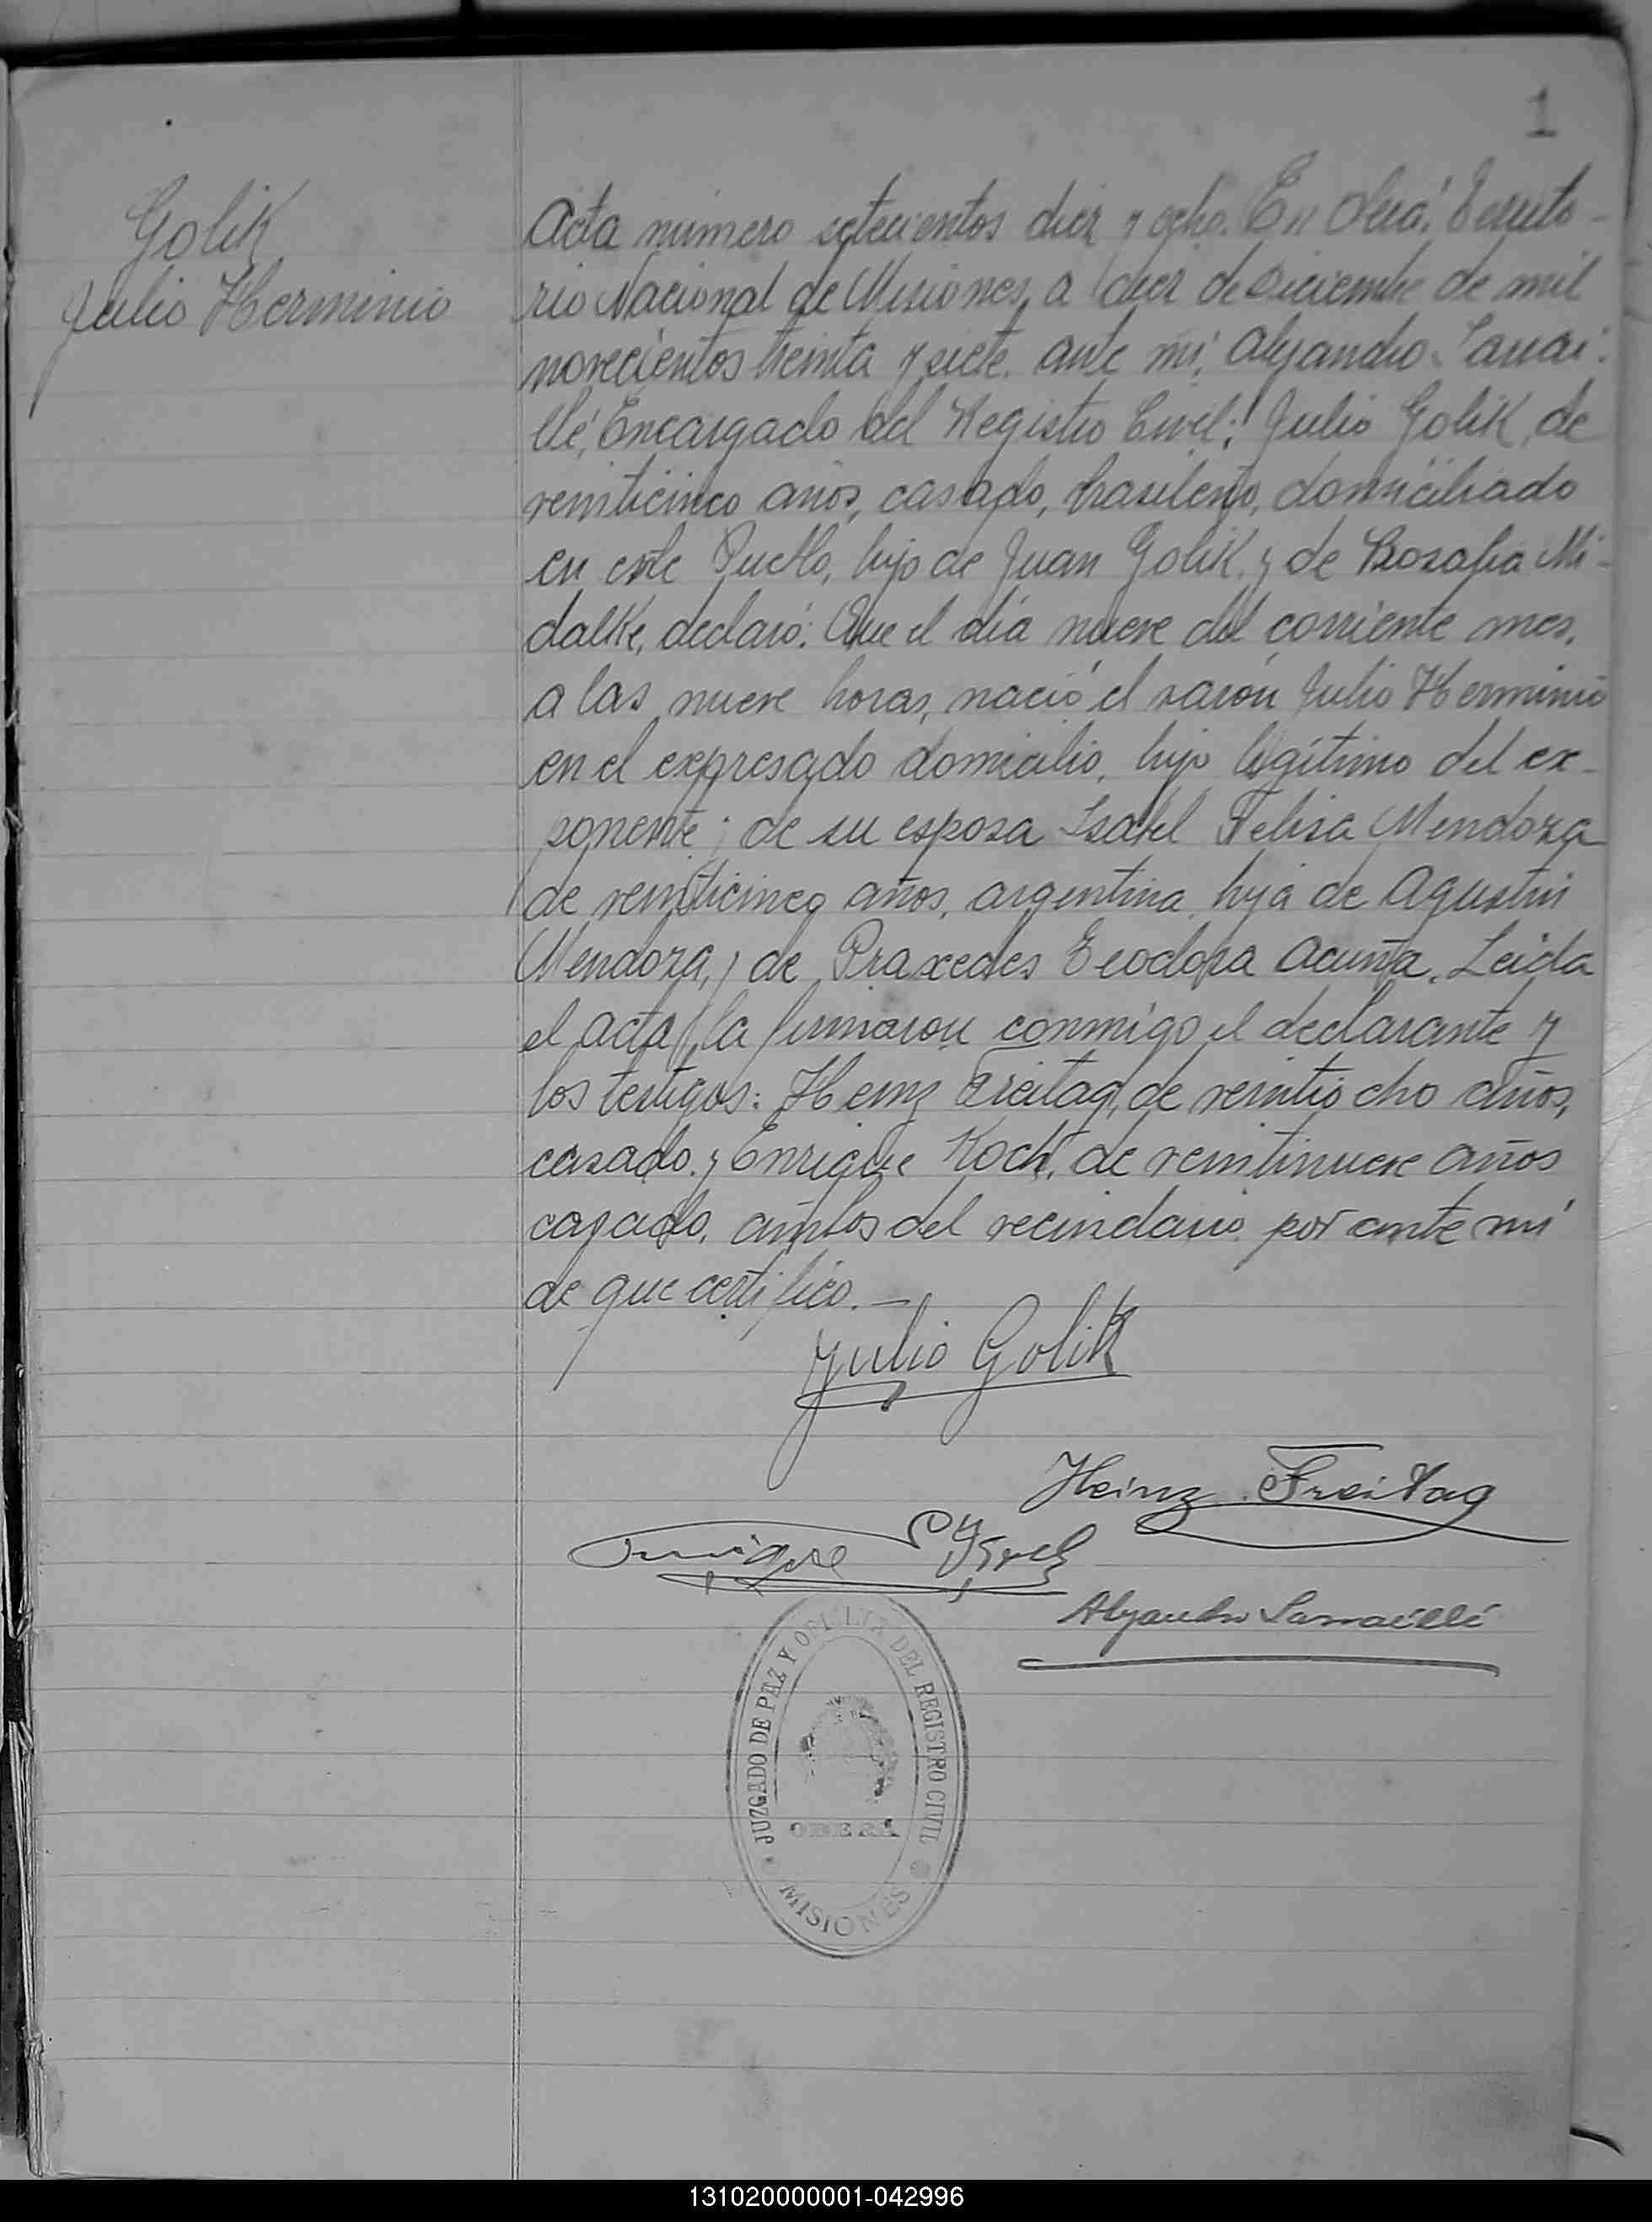 1
Golik
Julio Herminio
Acta número setecientos diez y ocho. En Oberá, Territo-
rio Nacional de Misiones, a diez de Diciembre de mil
novecientos treinta y siete. ante mí, Alejandro
Encargado del Registro Civil; Julio Golik, de
veinticinco años, casado, brasileño, domiciliado
en este Pueblo, hijo de Juan Golik y de Rosalia Mi-
dalke, declaró: Que el día nueve del corriente mes,
a las nueve horas, nació el varón Julio Herminio
en el expresado domicilio, hijo legítimo del ex-
ponente y de su esposa Isabel Felisa Mendoza
de veinticinco años, argentina, hija de Agustín
Mendoza, y de Praxedes Teodora Acuña. Leida
el acta, la firmaron conmigo el declarante y
los testigos: Heinz Freitag, de veintiocho años,
casado, y Enrique Koch, de veintinueve años
casado, ambos del vecindario por ante mí
de que certifico.—
Julio Golik
Heinz Freitag
Enrique Koch
Alejandro
JUZGADO DE PAZ Y OFICINA DEL REGISTRO CIVIL
OBERA
MISIONES
131020000001-042996